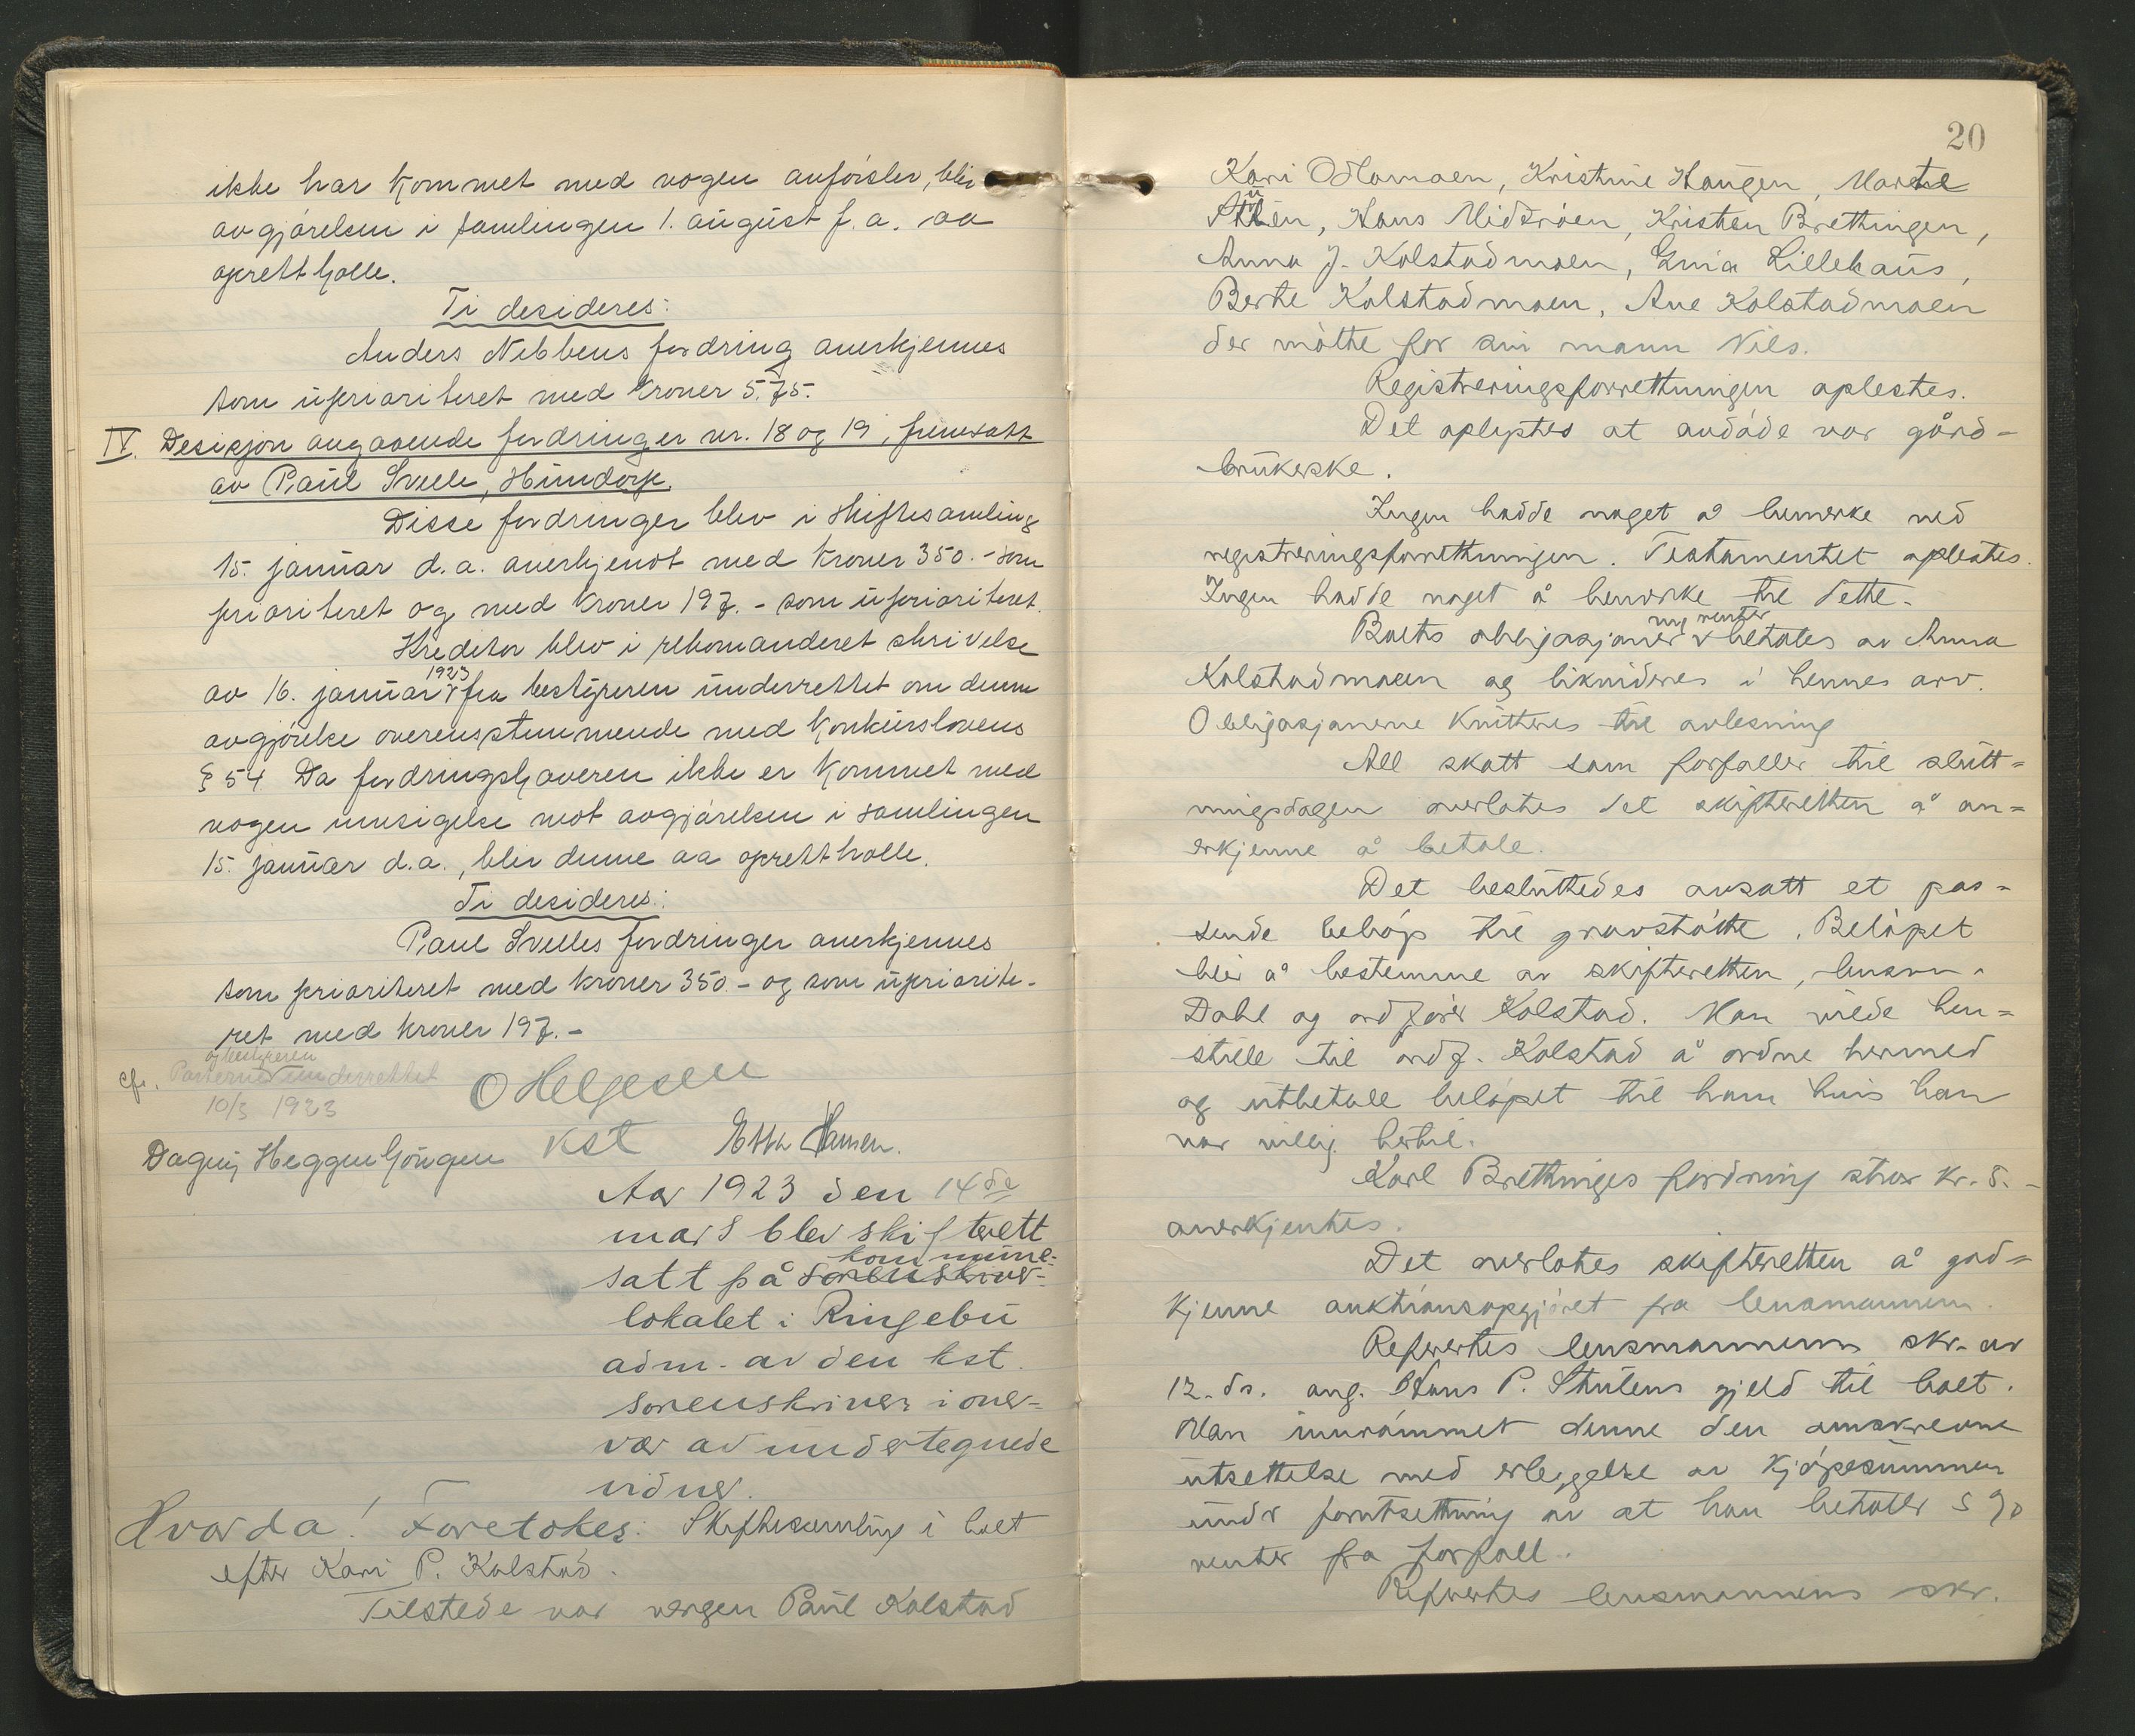 ikke har kommet med nogen anførsler, blir
avgjørelsen i samlingen 1. august f.a. aa
oprettholle.
Ti desideres:
Anders Nebbens fordring anerkjennes
som uprioriteret med kroner 5.75.
IV. Desisjon angaaende fordringer nr. 18 og 19, fremsatt
av Paul Svelle, Hundorp.
Disse fordringer blev i skiftesamling
15. januar d.a. anerkjendt med kroner 350.- som
prioriteret og med kroner 197.- som uprioriteret.
Kreditor blev i rekomanderet skrivelse
av 16. januar 1923 fra bestyreren underrettet om denne
avgjørelse overensstemmende med konkurslovens
§ 54 Da fordringshaveren ikke er kommet med
nogen innsigelse mot avgjørelsen i samlingen
15. januar d.a., blir denne aa oprettholle.
Ti desideres:
Paul Svelles fordringer anerkjennes
som prioriteret med kroner 350.- og som upriorite-
ret med kroner 197.-
og bestyreren
cfr. Parterne underrettet
10/3 1923
O Helgesen
kst
Dagny Heggenhougen
Hansen.
Aar 1923 den 14de
mars blev skifterett
kommune-
satt på sorenskriver-
lokalet i Ringebu
adm. av den kst.
sorenskriver i over-
vær av undertegnede
vidner.
Hvorda! Foretokes: Skiftesamling i boet
efter Kari P. Kolstad.
Tilstede var vergen Paul Kolstad
20
Kari Odlomoen, Kristine Haugen, Marthe
Hans Midtrøen, Kristen Brettingen,
Anna J. Kolstadmoen, Lillehaus,
Berte Kolstadmoen, Ane Kolstadmoen
der møtte for sin mann Nils.
Registreringsforretningen oplestes.
Det oplystes at avdøde var gård-
brukerske.
Ingen hadde noget å bemerke ved
registreringsforretningen. Testamentet oplestes.
Ingen hadde noget å bemerke til dette.
Boets obligasjoner m/ renter betales av Anna
Kolstadmoen og likvideres i hennes arv.
Obligasjonerne kvitteres til avlesning
All skatt som forfaller til slutt-
ningsdagen overlates det skifteretten å an-
erkjenne å betale.
Det besluttedes avsatt et pas-
sende beløp til gravstøtte. Beløpet
blir å bestemme av skifteretten, lensm.
Dahl og ordfører Kolstad. Man vilde hen-
stille til ordf. Kolstad å ordne hermed
og utbetale beløpet til ham hvis han
var villig hertil.
Karl Brettinges fordring stor kr. 5.-
anerkjentes.
Det overlates skifteretten å god-
kjenne auktionsopgjøret fra lensmannen.
Refertes lensmannens skr. av
12. ds. ang. Hans P. Stulens gjeld til boet.
Man innrømmet denne den omskrevne
utsettelse med erleggelse av kjøpesummen
under forutsetning av at han betaler 5 %
renter fra forfall.
Refertes lensmannens skr.